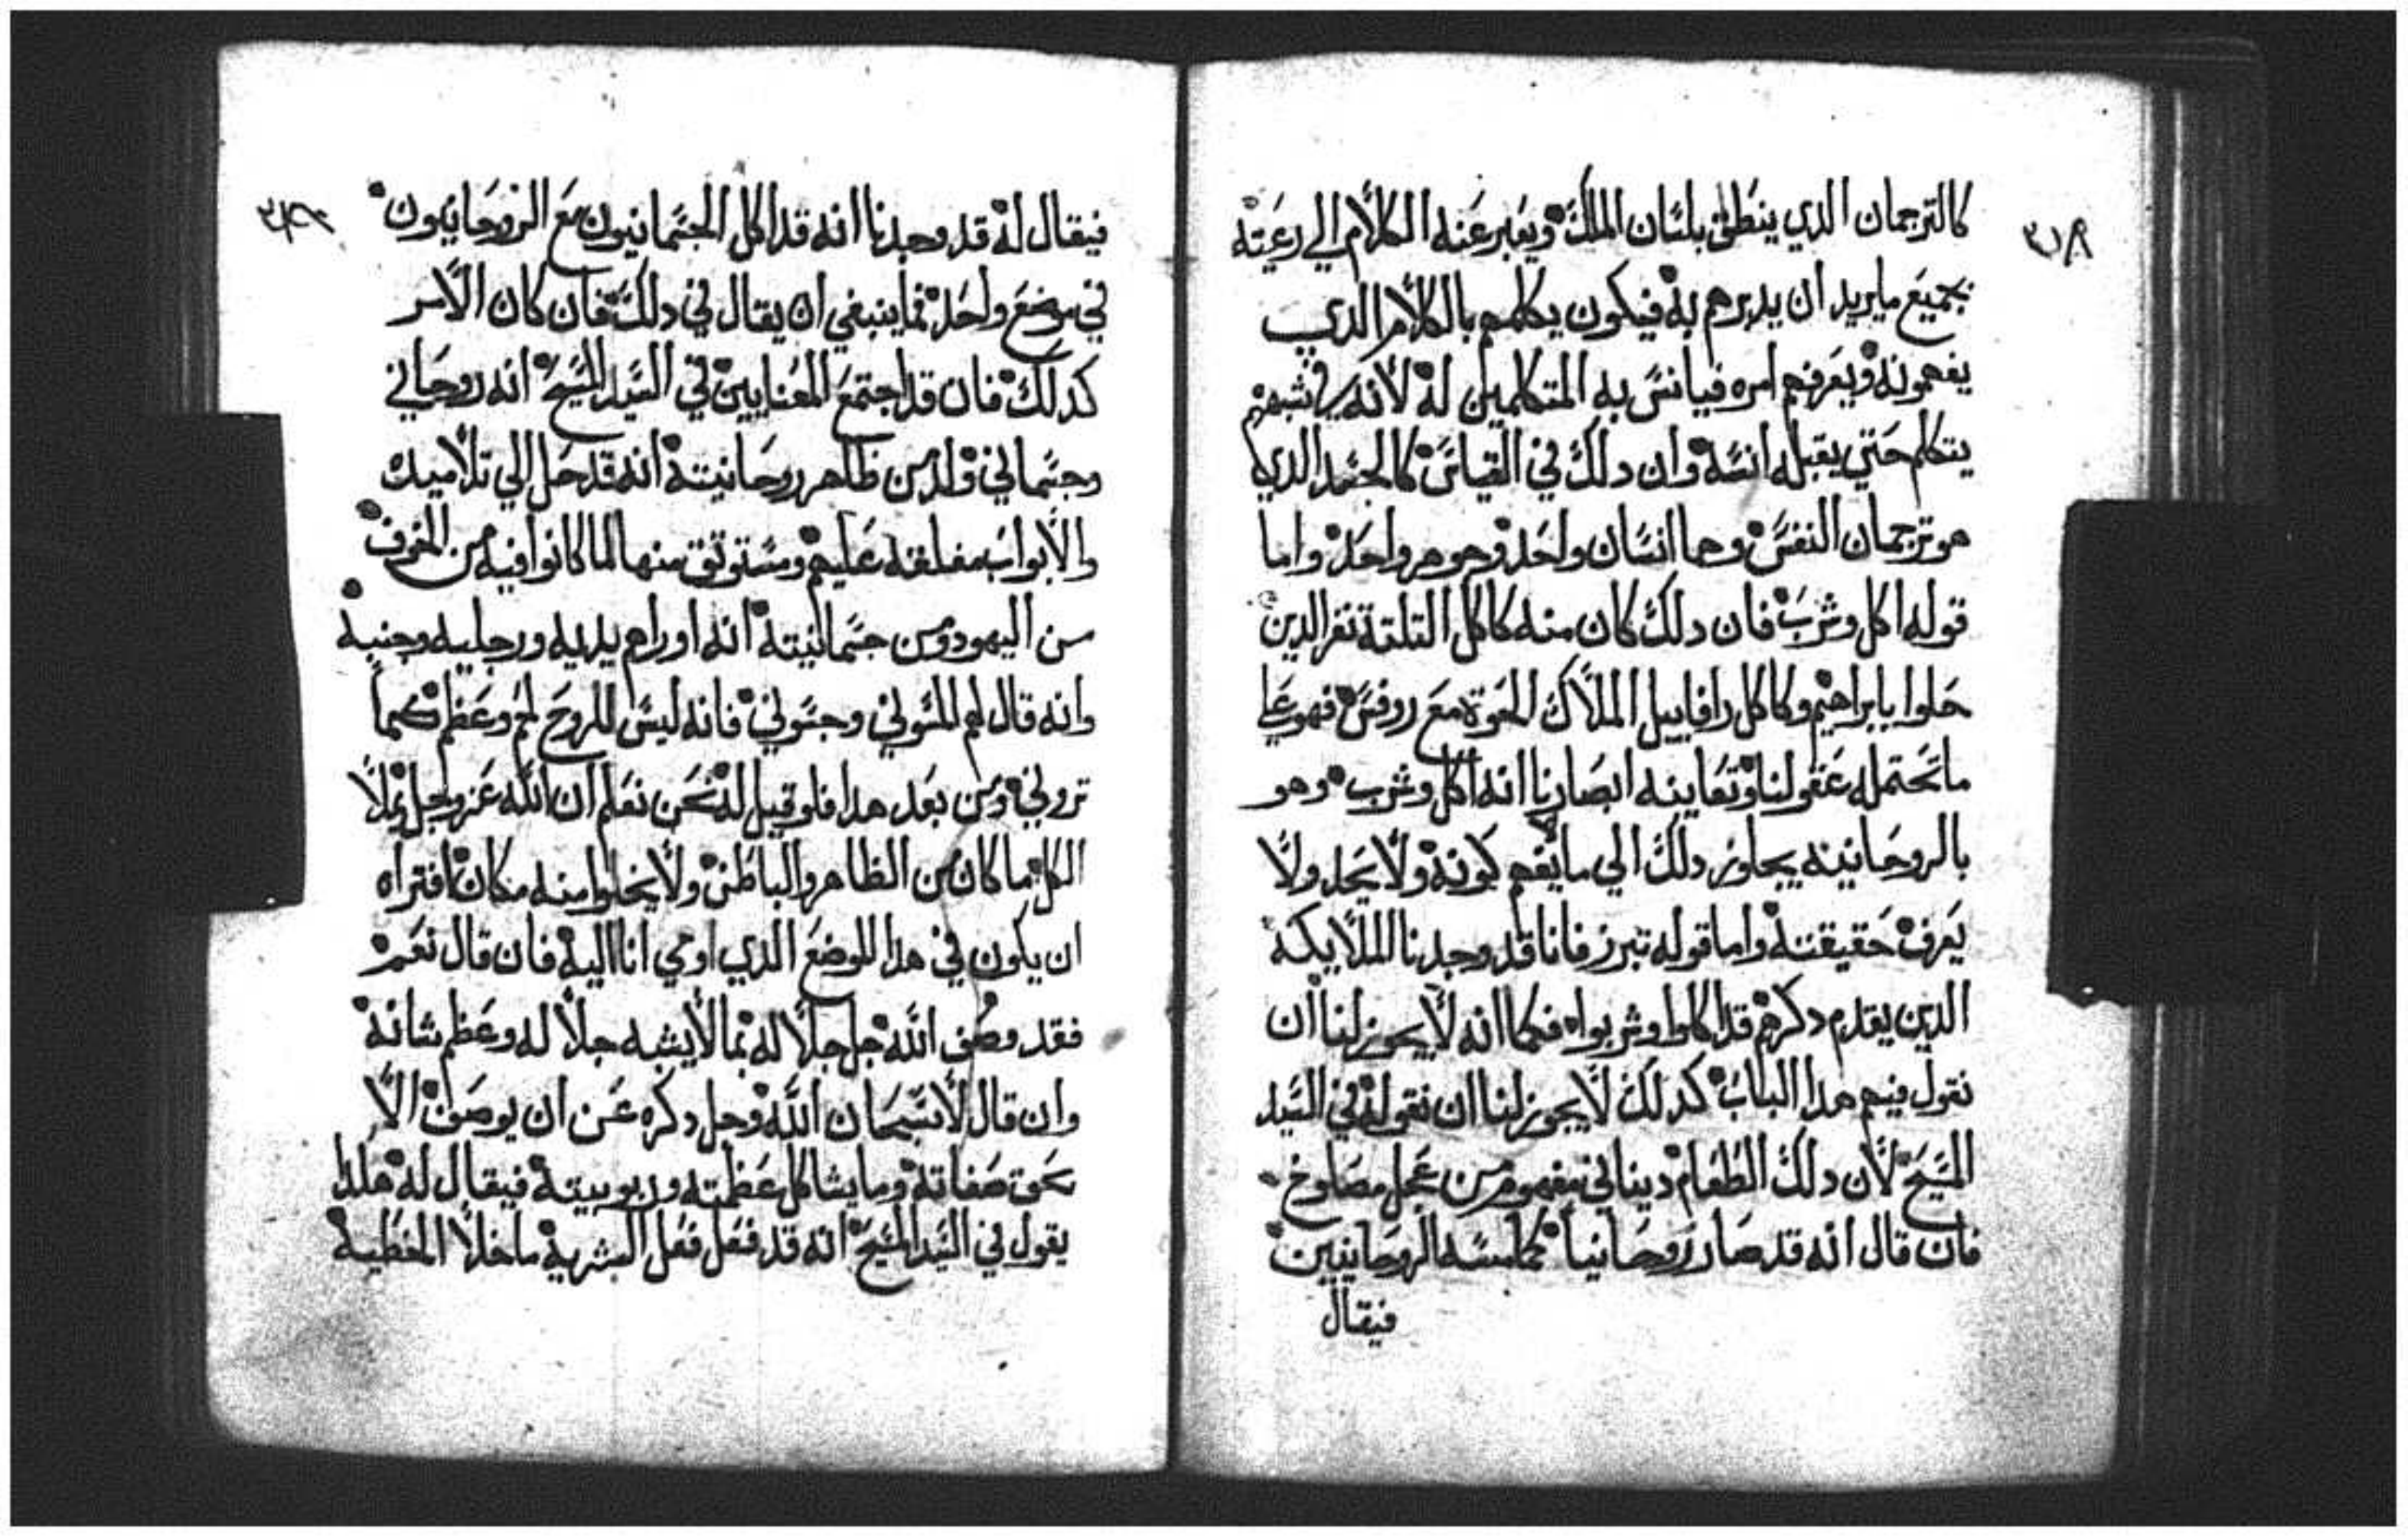 كالترجمان الدي ينطق بلسان الملك ويعبر عنه الكلام الي رعيته
بجميع مايريد ان يدبرهم به فيكون يكلمهم بالكلام الدي
يفهمونه ويعرفهم امره فيانس به المتكلمين له لانه
يتكلم حتي يقبله انسه وان دلك في القياس كالجسد الدي
هو ترجمان النفس وهما انسان واحد وجوهر واحد واما
قوله اكل وشرب فان دلك كان منه كاكل التلتة نفر الدين
حلوا بابراهيم وكاكل رافاييل الملاك مع روفس فهو علي
ماتحتمله عقولنا وتعاينه ابصارنا انه اكل وشرب وهو
بالروحانينه يجاوز دلك الي مايفهم كونه ولا يحد ولا
يعرف حقيقته واما قوله تبرز فانا قد وجدنا الملايكه
الدين يقدم دكرهم قد اكلوا وشربوا فكما انه لايجوز لنا ان
نقول فيهم هدا الباب كدلك لايجوز لنا ان نقوله في السيد
المسيح لان دلك الطعام ديناني مفهوم من عجل
فان قال انه قد صار روحانيا الروحانيين
فيقال
٣١٩
فيقال له قد وجدنا انه قد اكل الجسمانيون مع الروحانيون
في موضع واحد فماينبغي ان يقال في دلك فان كان الامر
كدلك فان قد اجتمع المعنايين في السيد المسيح انه روحاني
وجسماني والد من ظاهر روحانيته انه قد حل الي تلاميده
والابواب مغلقه عليهم ومستوتق منها لما كانوا فيه من الخوف
من اليهود ومن جسمانيته انه اوراهم يديه ورجليه وجنبه
وانه قال لهم المسوني وجسوني فانه ليس للروح لحم وعظم كما
تروني ومن بعد هدا فلو قيل له نحن نعلم ان الله عز وجل يملا
الكل ما كان من الظاهر والباطن ولا يخلوا منه مكان افتراه
ان يكون في هدا الموضع الدي اومي انا اليه فان قال نعم
فقد وصف الله جل جلاله بما لايشبه جلاله وعظم شانه
وان قال لا سبحان الله وجل دكره عن ان يوصف الا
بحق صفاته ومايشاكل عظمته وربوبيته فيقال له هكدا
يقول في السيد المسيح انه قد فعل فعل البشريه ماخلا الخطيه